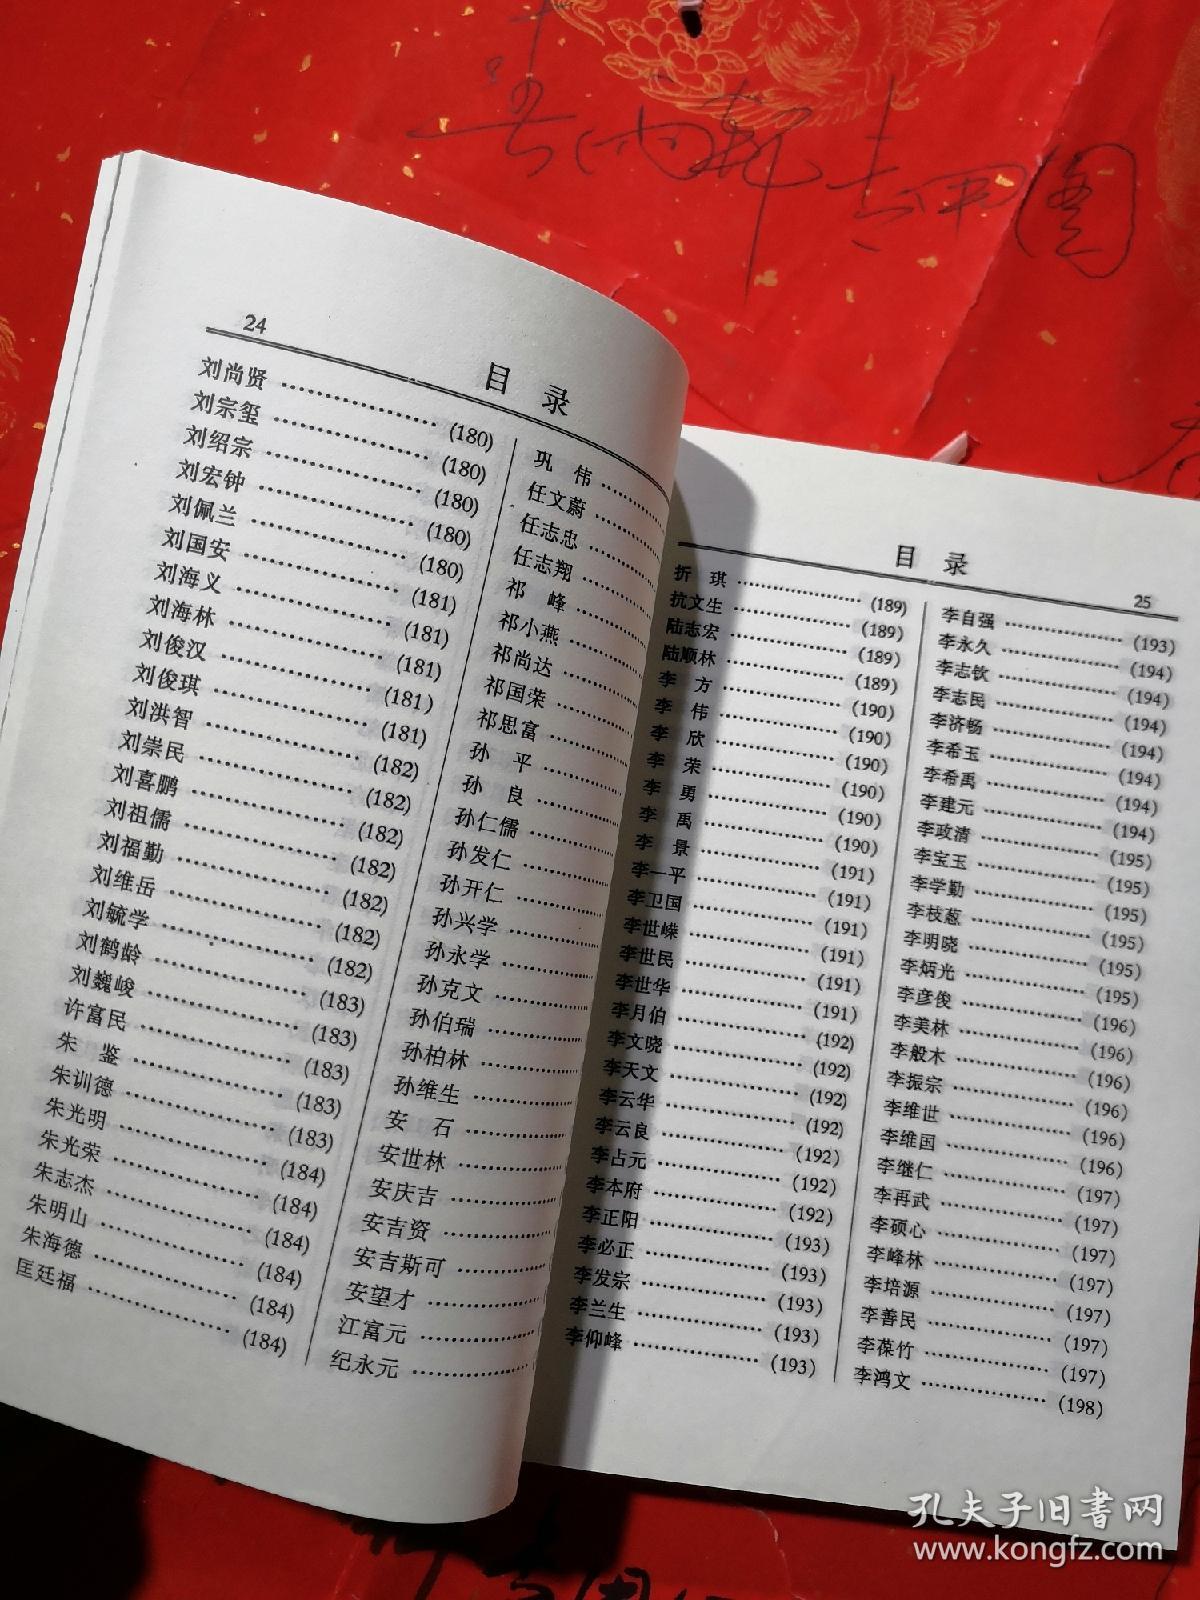 24
目 录
刘尚贤 (180)
刘宗玺 (180)
刘绍宗 (180)
刘宏钟 (180)
刘佩兰 (180)
刘国安 (181)
刘海义 (181)
刘海林 (181)
刘俊汉 (181)
刘俊琪 (181)
刘洪智 (182)
刘崇民 (182)
刘喜鹏 (182)
刘祖儒 (182)
刘福勤 (182)
刘维岳 (182)
刘毓学 (182)
刘鹤龄 (183)
刘巍峻 (183)
许富民 (183)
朱 鉴 (183)
朱训德 (183)
朱光明 (184)
朱光荣 (184)
朱志杰 (184)
朱明山 (184)
朱海德 (184)
匡廷福 (184)
巩 伟
任文蔚
任志忠
任志翔
祁 峰
祁小燕
祁尚达
祁国荣
祁思富
孙 平
孙 良
孙仁儒
孙发仁
孙开仁
孙兴学
孙永学
孙克文
孙伯瑞
孙柏林
孙维生
安 石
安世林
安庆吉
安吉资
安吉斯可
安望才
江富元
纪永元
目 录
25
折 琪 (189)
抗文生 (189)
陆志宏 (189)
陆顺林 (189)
李 方 (190)
李 伟 (190)
李 欣 (190)
李 荣 (190)
李 勇 (190)
李 禹 (190)
李 景 (191)
李一平 (191)
李卫国 (191)
李世嵘 (191)
李世民 (191)
李世华 (191)
李月伯 (192)
李文晓 (192)
李天文 (192)
李云华 (192)
李云良 (192)
李占元 (192)
李本府 (192)
李正阳 (193)
李必正 (193)
李发宗 (193)
李兰生 (193)
李仰峰 (193)
李自强 (193)
李永久 (194)
李志钦 (194)
李志民 (194)
李济畅 (194)
李希玉 (194)
李希禹 (194)
李建元 (194)
李政清 (195)
李宝玉 (195)
李学勤 (195)
李枝葱 (195)
李明晓 (195)
李炳光 (195)
李彦俊 (196)
李美林 (196)
李般木 (196)
李振宗 (196)
李维世 (196)
李维国 (196)
李继仁 (197)
李再武 (197)
李硕心 (197)
李峰林 (197)
李培源 (197)
李善民 (197)
李葆竹 (197)
李鸿文 (198)
孔夫子旧书网
www.kongfz.com